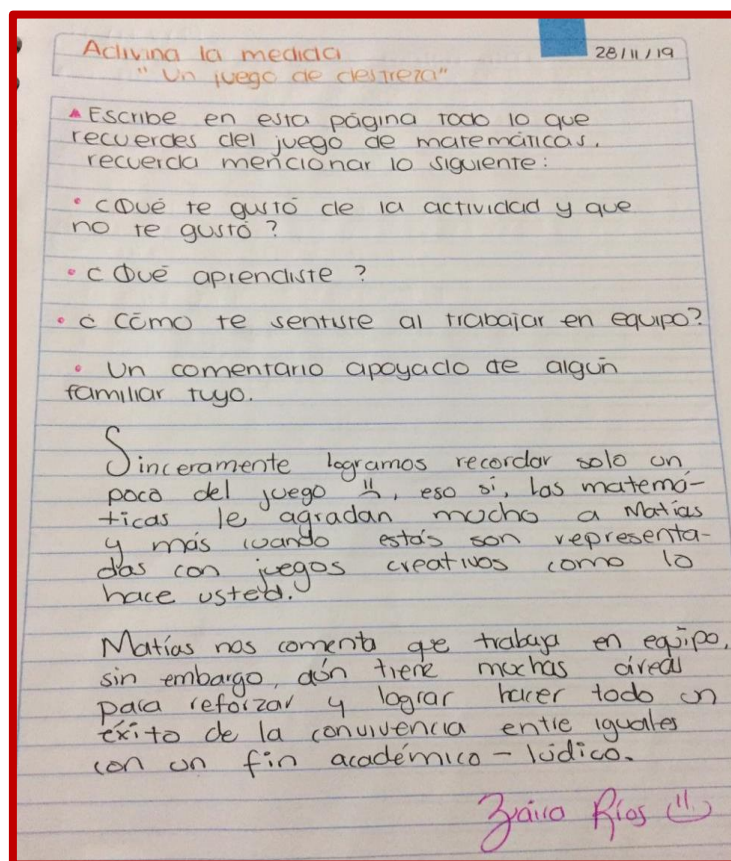 Adivina la medida
28/11/19
"Un juego de destreza"
Escribe en esta página todo lo que
recuerdes del juego de matemáticas.
recuerda mencionar lo siguiente:
• ¿Qué te gustó de la actividad y que
no te gustó?
• ¿Qué aprendiste?
• ¿Cómo te sentiste al trabajar en equipo?
• Un comentario apoyado de algún
familiar tuyo.
Sinceramente logramos recordar solo un
poco del juego, eso sí, las matemá-
ticas le agradan mucho a Matías
y más cuando estás son representa-
das con juegos creativos como lo
hace usted.
Matías nos comenta que trabaja en equipo,
sin embargo, aún tiene muchas áreas
para reforzar y lograr hacer todo un
éxito de la convivencia entre iguales
con un fin académico - lúdico.
Ríos